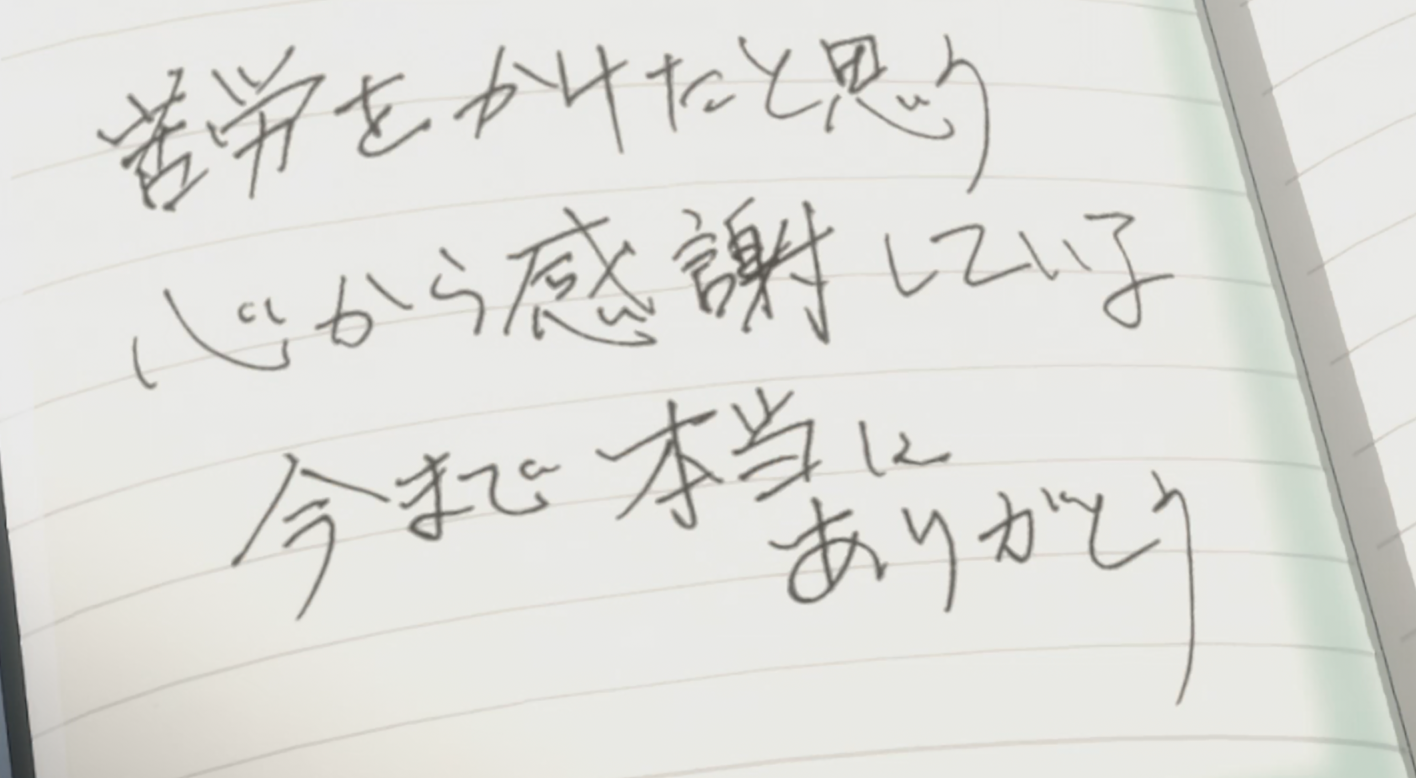 苦労をかけたと思う
心から感謝している
今まで本当に
ありがとう